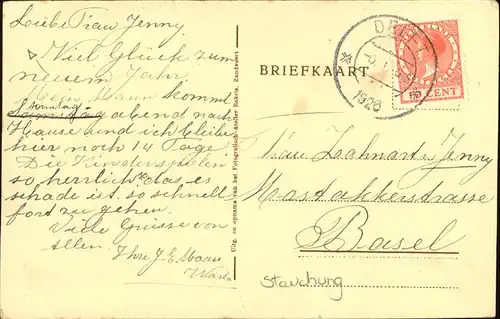 Liebe Frau Jenny
Viel Glück zum
neuem Jahr.
Mein Mann kommt
Sonntag
Samstag abend nach
Hause und ich bleibe
hier noch 14 Tage
Die Kinder spielen
so herrlich, das es
schade ist so schnell
fort zu gehen.
Viele Grüsse von
allen.
Ihre J. E. Maan
Uitg. en opname van het Fotografisch Atelier Bakels, Zandvoort
BRIEFKAART
NEDERLAND
CENT
1926
Frau Jenny
Basel
Stauchung